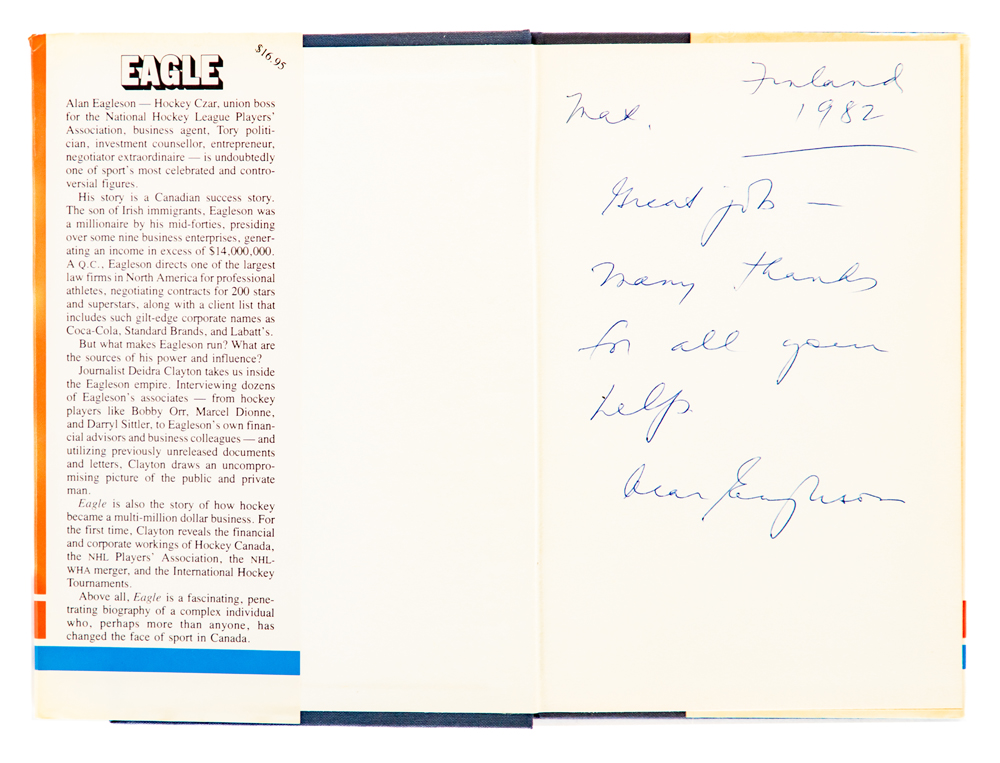 EAGLE
$16.95
Alan Eagleson — Hockey Czar, union boss
for the National Hockey League Players'
Association, business agent, Tory politi-
cian, investment counsellor, entrepreneur,
negotiator extraordinaire — is undoubtedly
one of sport's most celebrated and contro-
versial figures.
His story is a Canadian success story.
The son of Irish immigrants, Eagleson was
a millionaire by his mid-forties, presiding
over some nine business enterprises, gener-
ating an income in excess of $14,000,000.
A Q.C., Eagleson directs one of the largest
law firms in North America for professional
athletes, negotiating contracts for 200 stars
and superstars, along with a client list that
includes such gilt-edge corporate names as
Coca-Cola, Standard Brands, and Labatt's.
But what makes Eagleson run? What are
the sources of his power and influence?
Journalist Deidra Clayton takes us inside
the Eagleson empire. Interviewing dozens
of Eagleson's associates — from hockey
players like Bobby Orr, Marcel Dionne,
and Darryl Sittler, to Eagleson's own finan-
cial advisors and business colleagues — and
utilizing previously unreleased documents
and letters, Clayton draws an uncompro-
mising picture of the public and private
man.
Eagle is also the story of how hockey
became a multi-million dollar business. For
the first time, Clayton reveals the financial
and corporate workings of Hockey Canada,
the NHL Players' Association, the NHL-
WHA merger, and the International Hockey
Tournaments.
Above all, Eagle is a fascinating, pene-
trating biography of a complex individual
who, perhaps more than anyone, has
changed the face of sport in Canada.
Finland
1982
Max,
Great job —
Many thanks
for all your
help.
Alan Eagleson